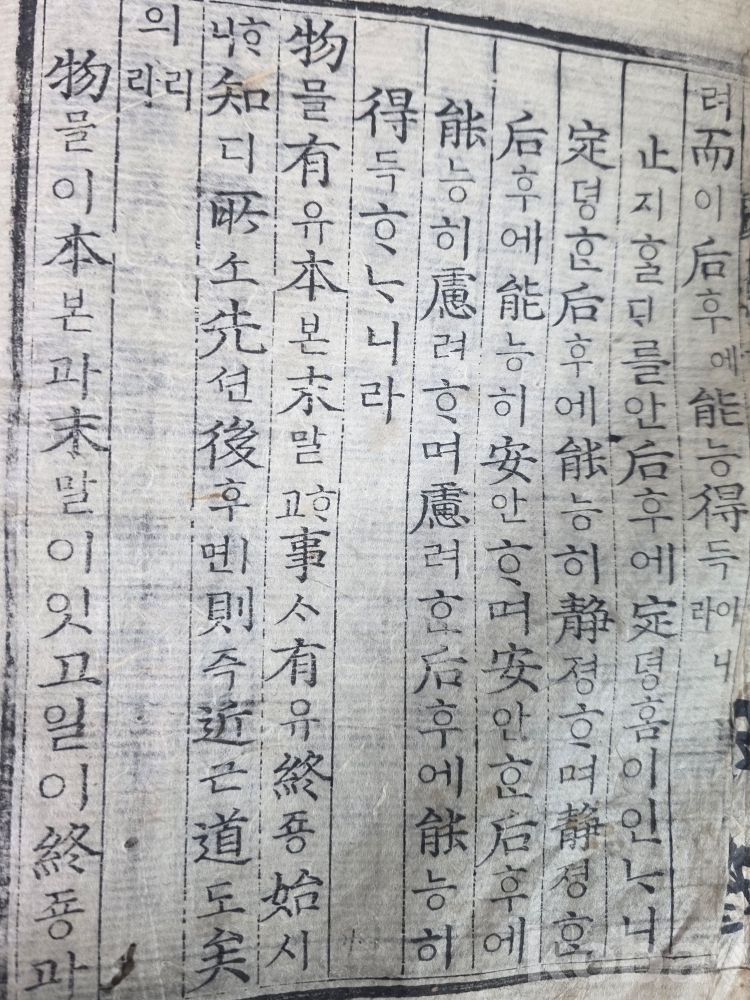 려而이后후에能능得득이니라
止지ᄒᆞᆯᄃᆡ를안后후에定뎡홈이인ᄂᆞ니
定뎡ᄒᆞᆫ后후에能능히静졍ᄒᆞ며静졍ᄒᆞᆫ
后후에能능히安안ᄒᆞ며安안ᄒᆞᆫ后후에
能능히慮려ᄒᆞ며慮려ᄒᆞᆫ后후에能능히
得득ᄒᆞᄂᆞ니라
物믈有유本본末말ᄒᆞ고事ᄉᆞ有유終죵始시
ᄒᆞ니知디所소先션後후ㅣ면則즉近근道도矣
의리라
物믈이本본과末말이잇고일이終죵과